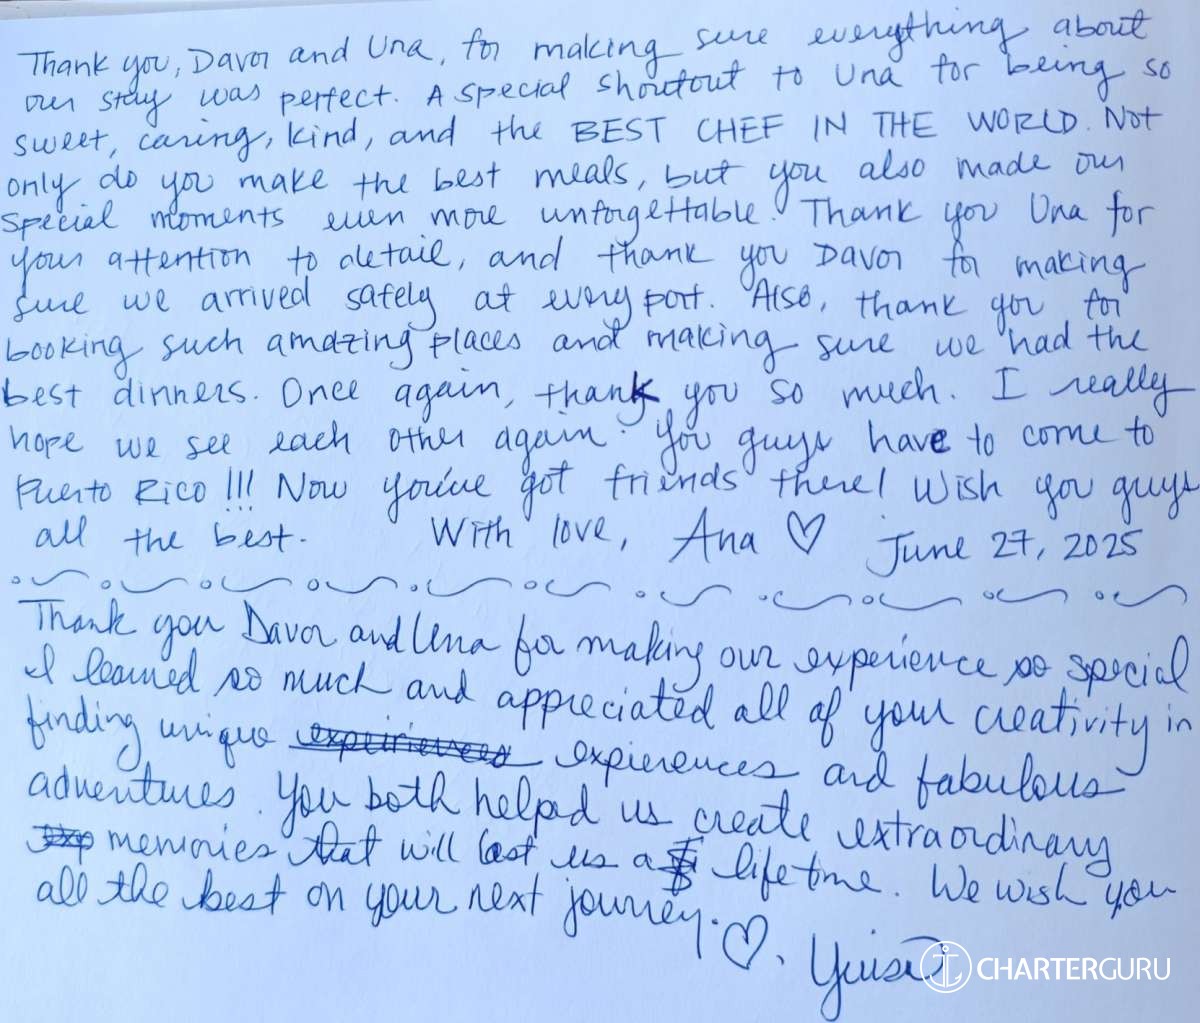 Thank you, Davor and Una, for making sure everything about
our stay was perfect. A special shoutout to Una for being so
sweet, caring, kind, and the BEST CHEF IN THE WORLD. Not
only do you make the best meals, but you also made our
special moments even more unforgettable. Thank you Una for
your attention to detail, and thank you Davor for making
sure we arrived safely at every port. Also, thank you for
booking such amazing places and making sure we had the
best dinners. Once again, thank you so much. I really
hope we see each other again. You guys have to come to
Puerto Rico!!! Now you've got friends there! Wish you guys
all the best. With love, Ana ♡ June 27, 2025
Thank you Davor and Una for making our experience so special
I learned so much and appreciated all of your creativity in
finding unique expierences and fabulous
adventures. You both helped us create extraordinary
memories that will last us a lifetime. We wish you
all the best on your next journey. ♡.
CHARTERGURU